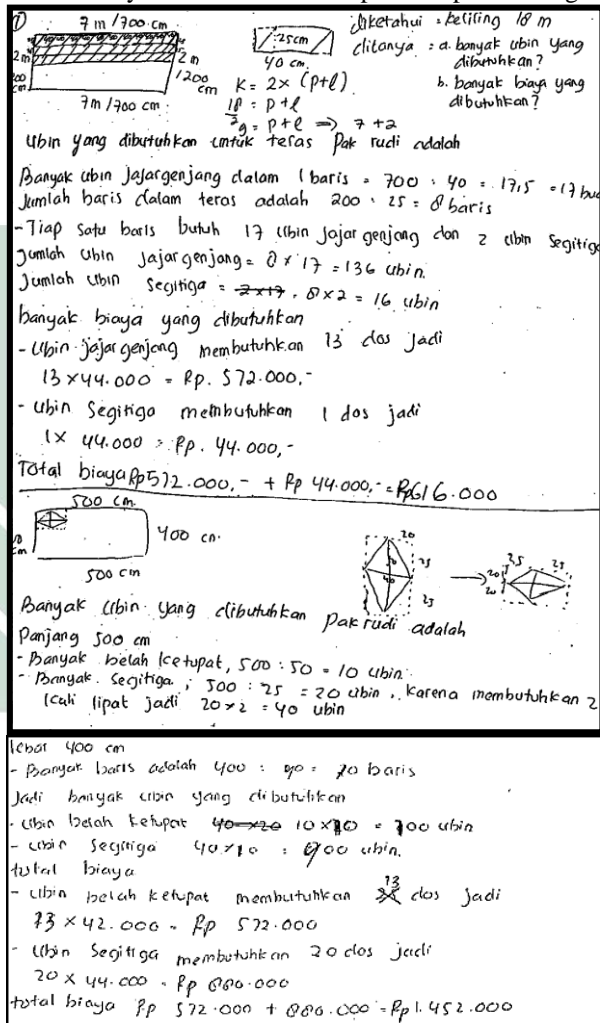 ①
7 m / 700 cm
2 m
2 m
/200 cm
7 m / 700 cm
25 cm
40 cm
K = 2 × (p+l)
18/2 = p+l
9 = p+l ⇒ 7 + 2
diketahui = keliling 18 m
ditanya : a. banyak ubin yang dibutuhkan?
b. banyak biaya yang dibutuhkan?
Ubin yang dibutuhkan untuk teras Pak rudi adalah
Banyak ubin Jajargenjang dalam 1 baris = 700 : 40 = 17,5 = 17 bu
Jumlah baris dalam teras adalah 200 : 25 = 8 baris
- Tiap satu baris butuh 17 ubin jajar genjang dan 2 ubin segitig
Jumlah ubin Jajar genjang = 8 × 17 = 136 ubin.
Jumlah ubin segitiga = 2×17 . 8 × 2 = 16 ubin
banyak biaya yang dibutuhkan
- Ubin jajargenjang membutuhkan 13 dos jadi
13 × 44.000 = Rp. 572.000,-
- Ubin Segitiga membutuhkan 1 dos jadi
1 × 44.000 = Rp. 44.000,-
Total biaya Rp572.000,- + Rp 44.000,- = Rp616.000
500 cm
400 cm
cm
500 cm
20
25
40
25
25
25
20
20
Banyak ubin yang dibutuhkan Pak rudi adalah
Panjang 500 cm
- Banyak belah ketupat, 500 : 50 = 10 ubin
- Banyak segitiga ; 500 : 25 = 20 ubin, karena membutuhkan 2
kali lipat jadi 20 × 2 = 40 ubin
lebar 400 cm
- Banyak baris adalah 400 : 40 = 10 baris
Jadi banyak ubin yang dibutuhkan
- ubin belah ketupat 40 × 20 10 × 10 = 100 ubin
- ubin segitiga 40 × 10 = 400 ubin.
total biaya
- ubin belah ketupat membutuhkan 13 dos jadi
13 × 42.000 = Rp 572.000
- ubin Segitiga membutuhkan 20 dos jadi
20 × 44.000 = Rp 880.000
total biaya Rp 572.000 + 880.000 = Rp 1.452.000